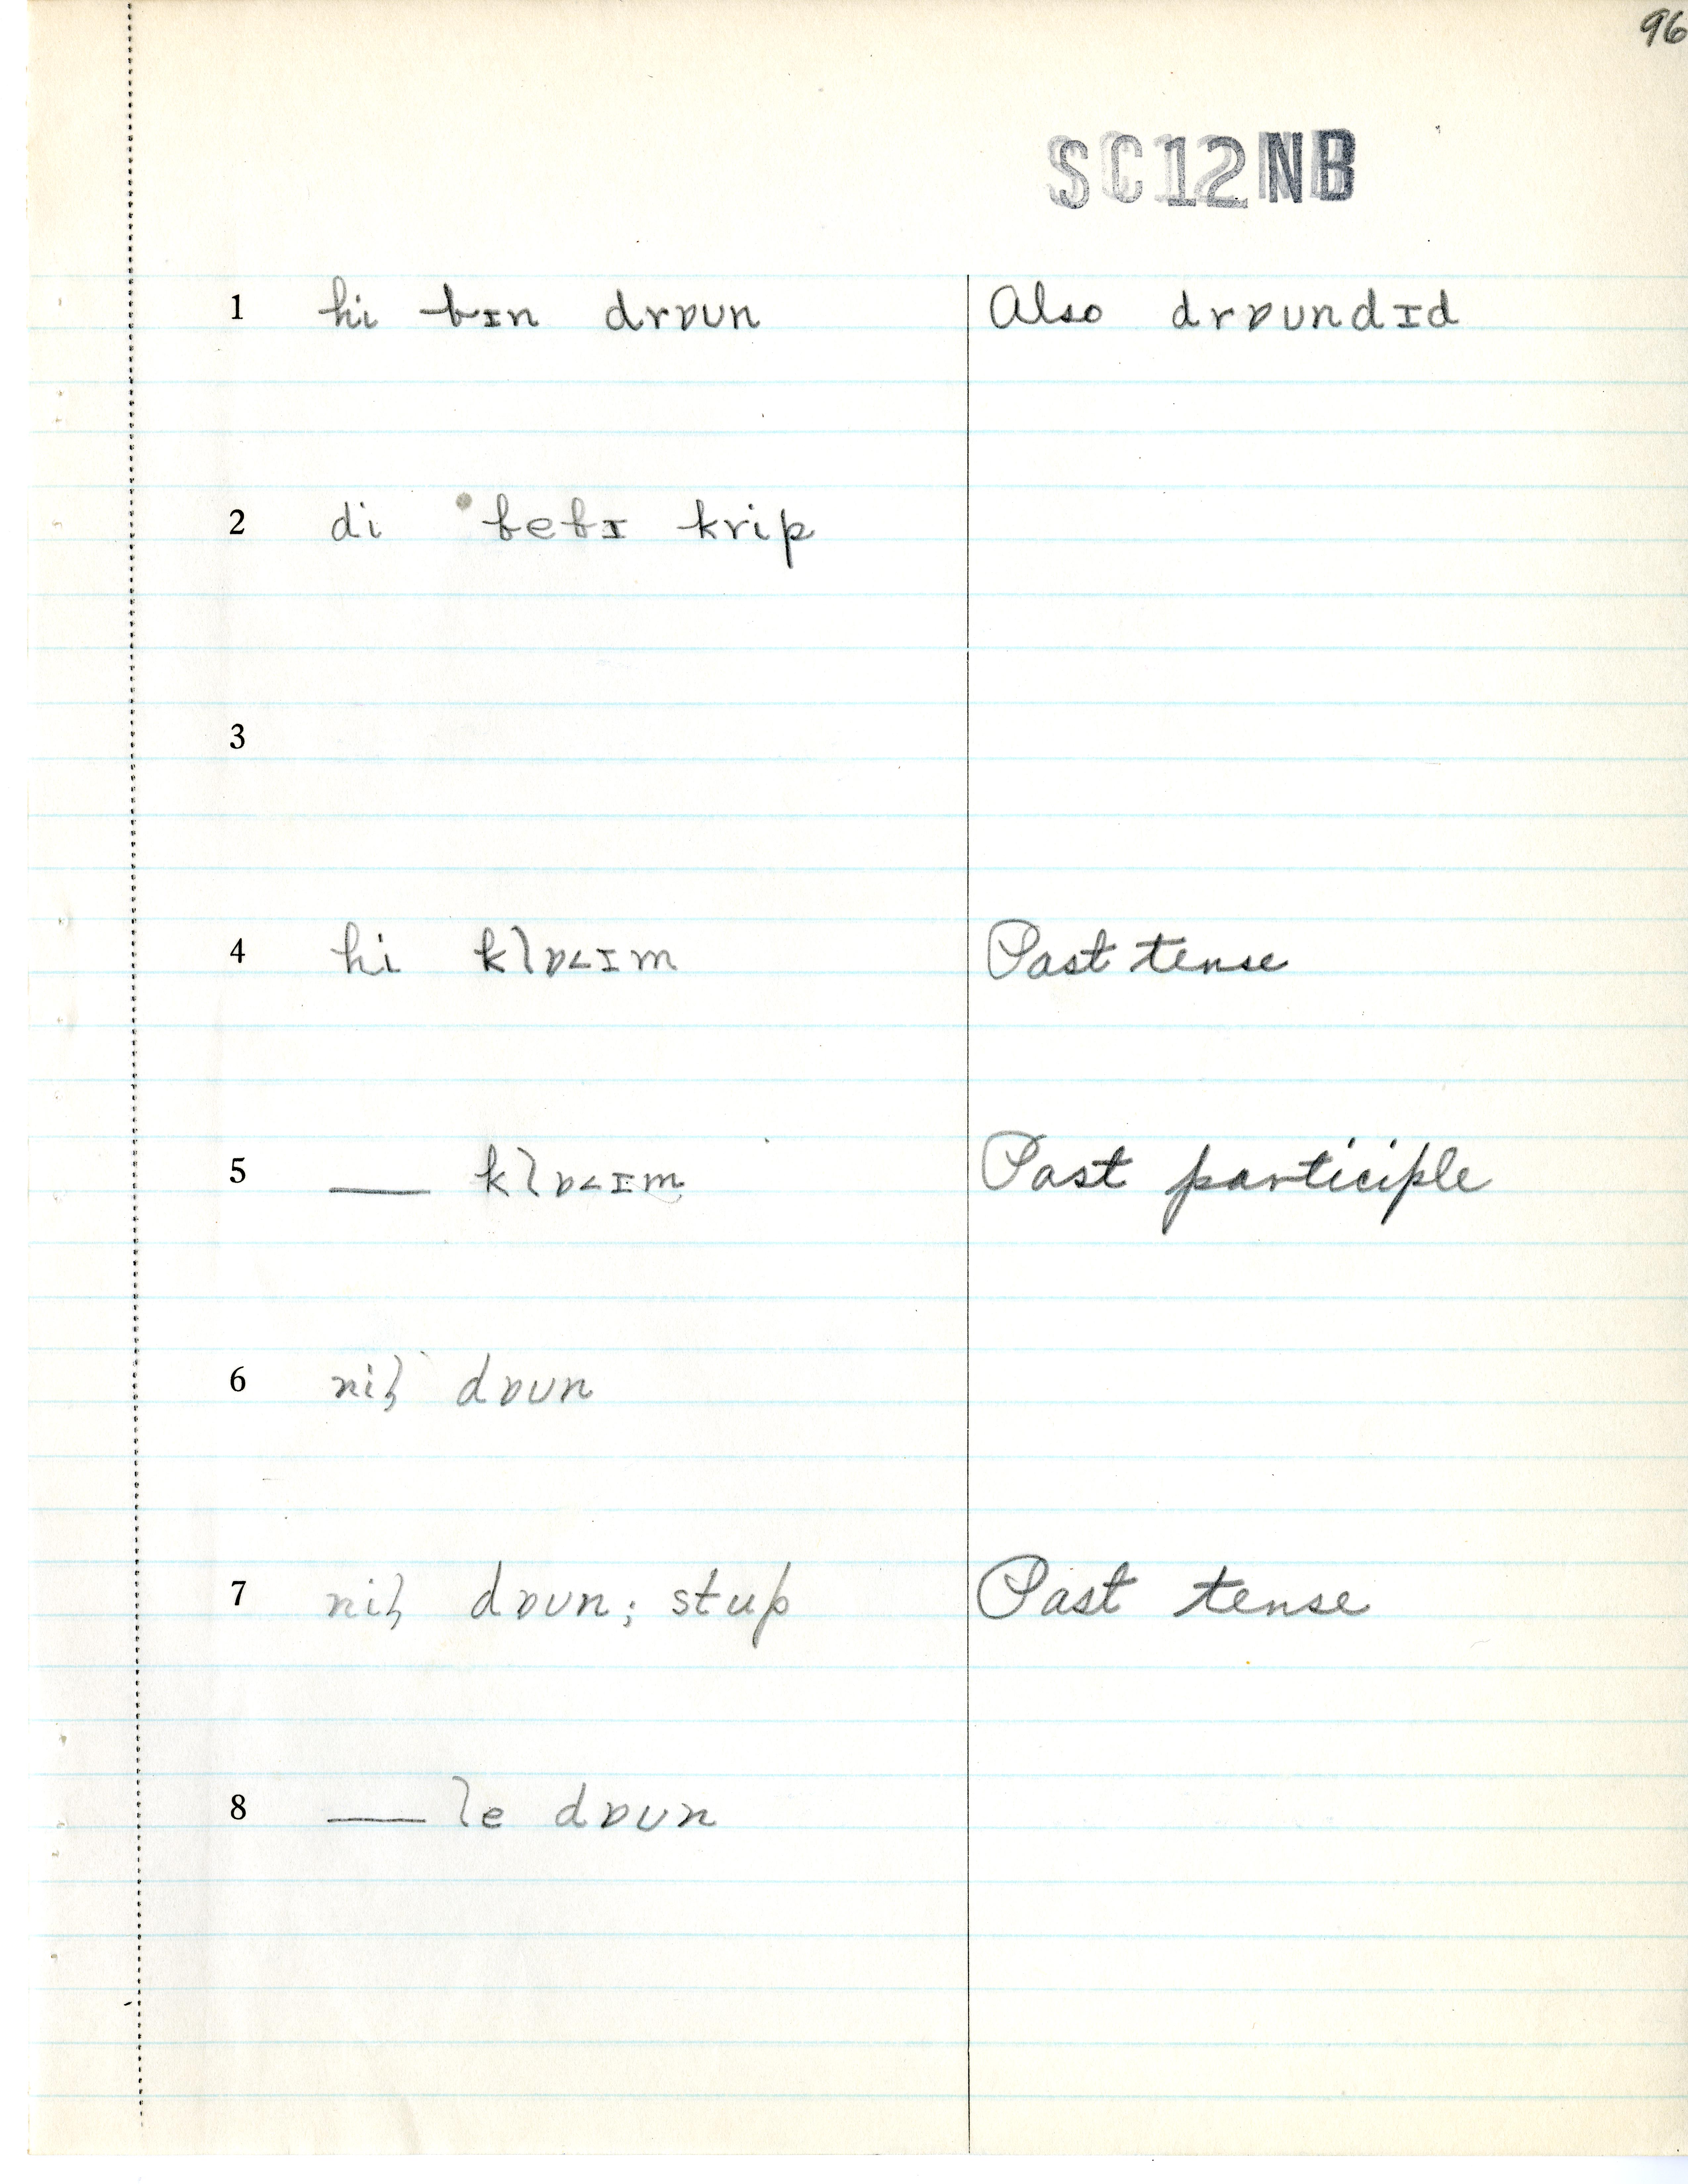 96
SC12NB
1 hi bɪn drɒun Also drɒundɪd
2 di bebɪ krip
3
4 hi klɒ˂ɪm Past tense
5 — klɒ˂ɪm Past participle
6 dɒun
7 dɒun; stup Past tense
8 — le dɒun